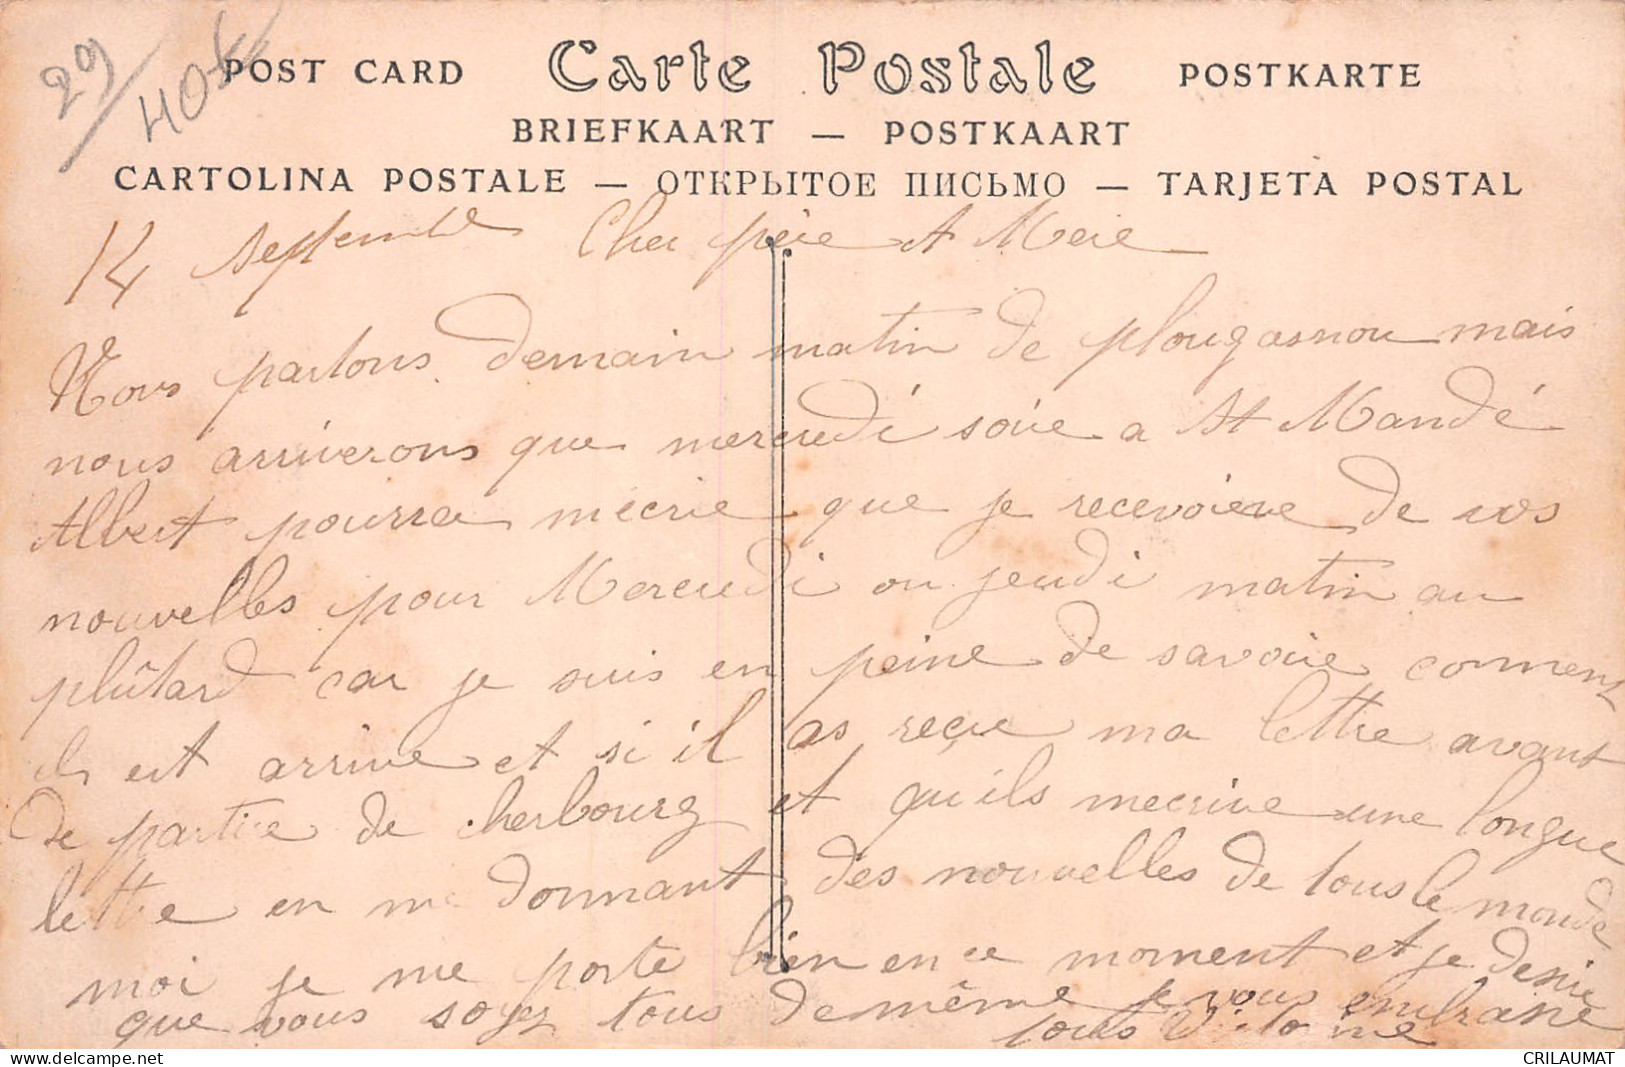 29
408
POST CARD Carte Postale POSTKARTE
BRIEFKAART — POSTKAART
CARTOLINA POSTALE — ОТКРЫТОЕ ПИСЬМО — TARJETA POSTAL
14 Septembre Cher père et Mere
Nous partons demain matin de plougasnou mais
nous arriverons que mercredi soire a St Mandé
Albert pourra mecrie que je recevoiere de vos
nouvelles pour Mercredi ou jeudi matin au
plûtard car je suis en peine de savoire comment
ils est arrive et si il as reçue ma lettre avant
de partire de cherbourg et qu'ils mecrive une longue
lettre en me donnant des nouvelles de tous le monde
moi je me porte bien en ce moment et je desire
que vous soyez tous de même je vous embrasse
tous
CRILAUMAT